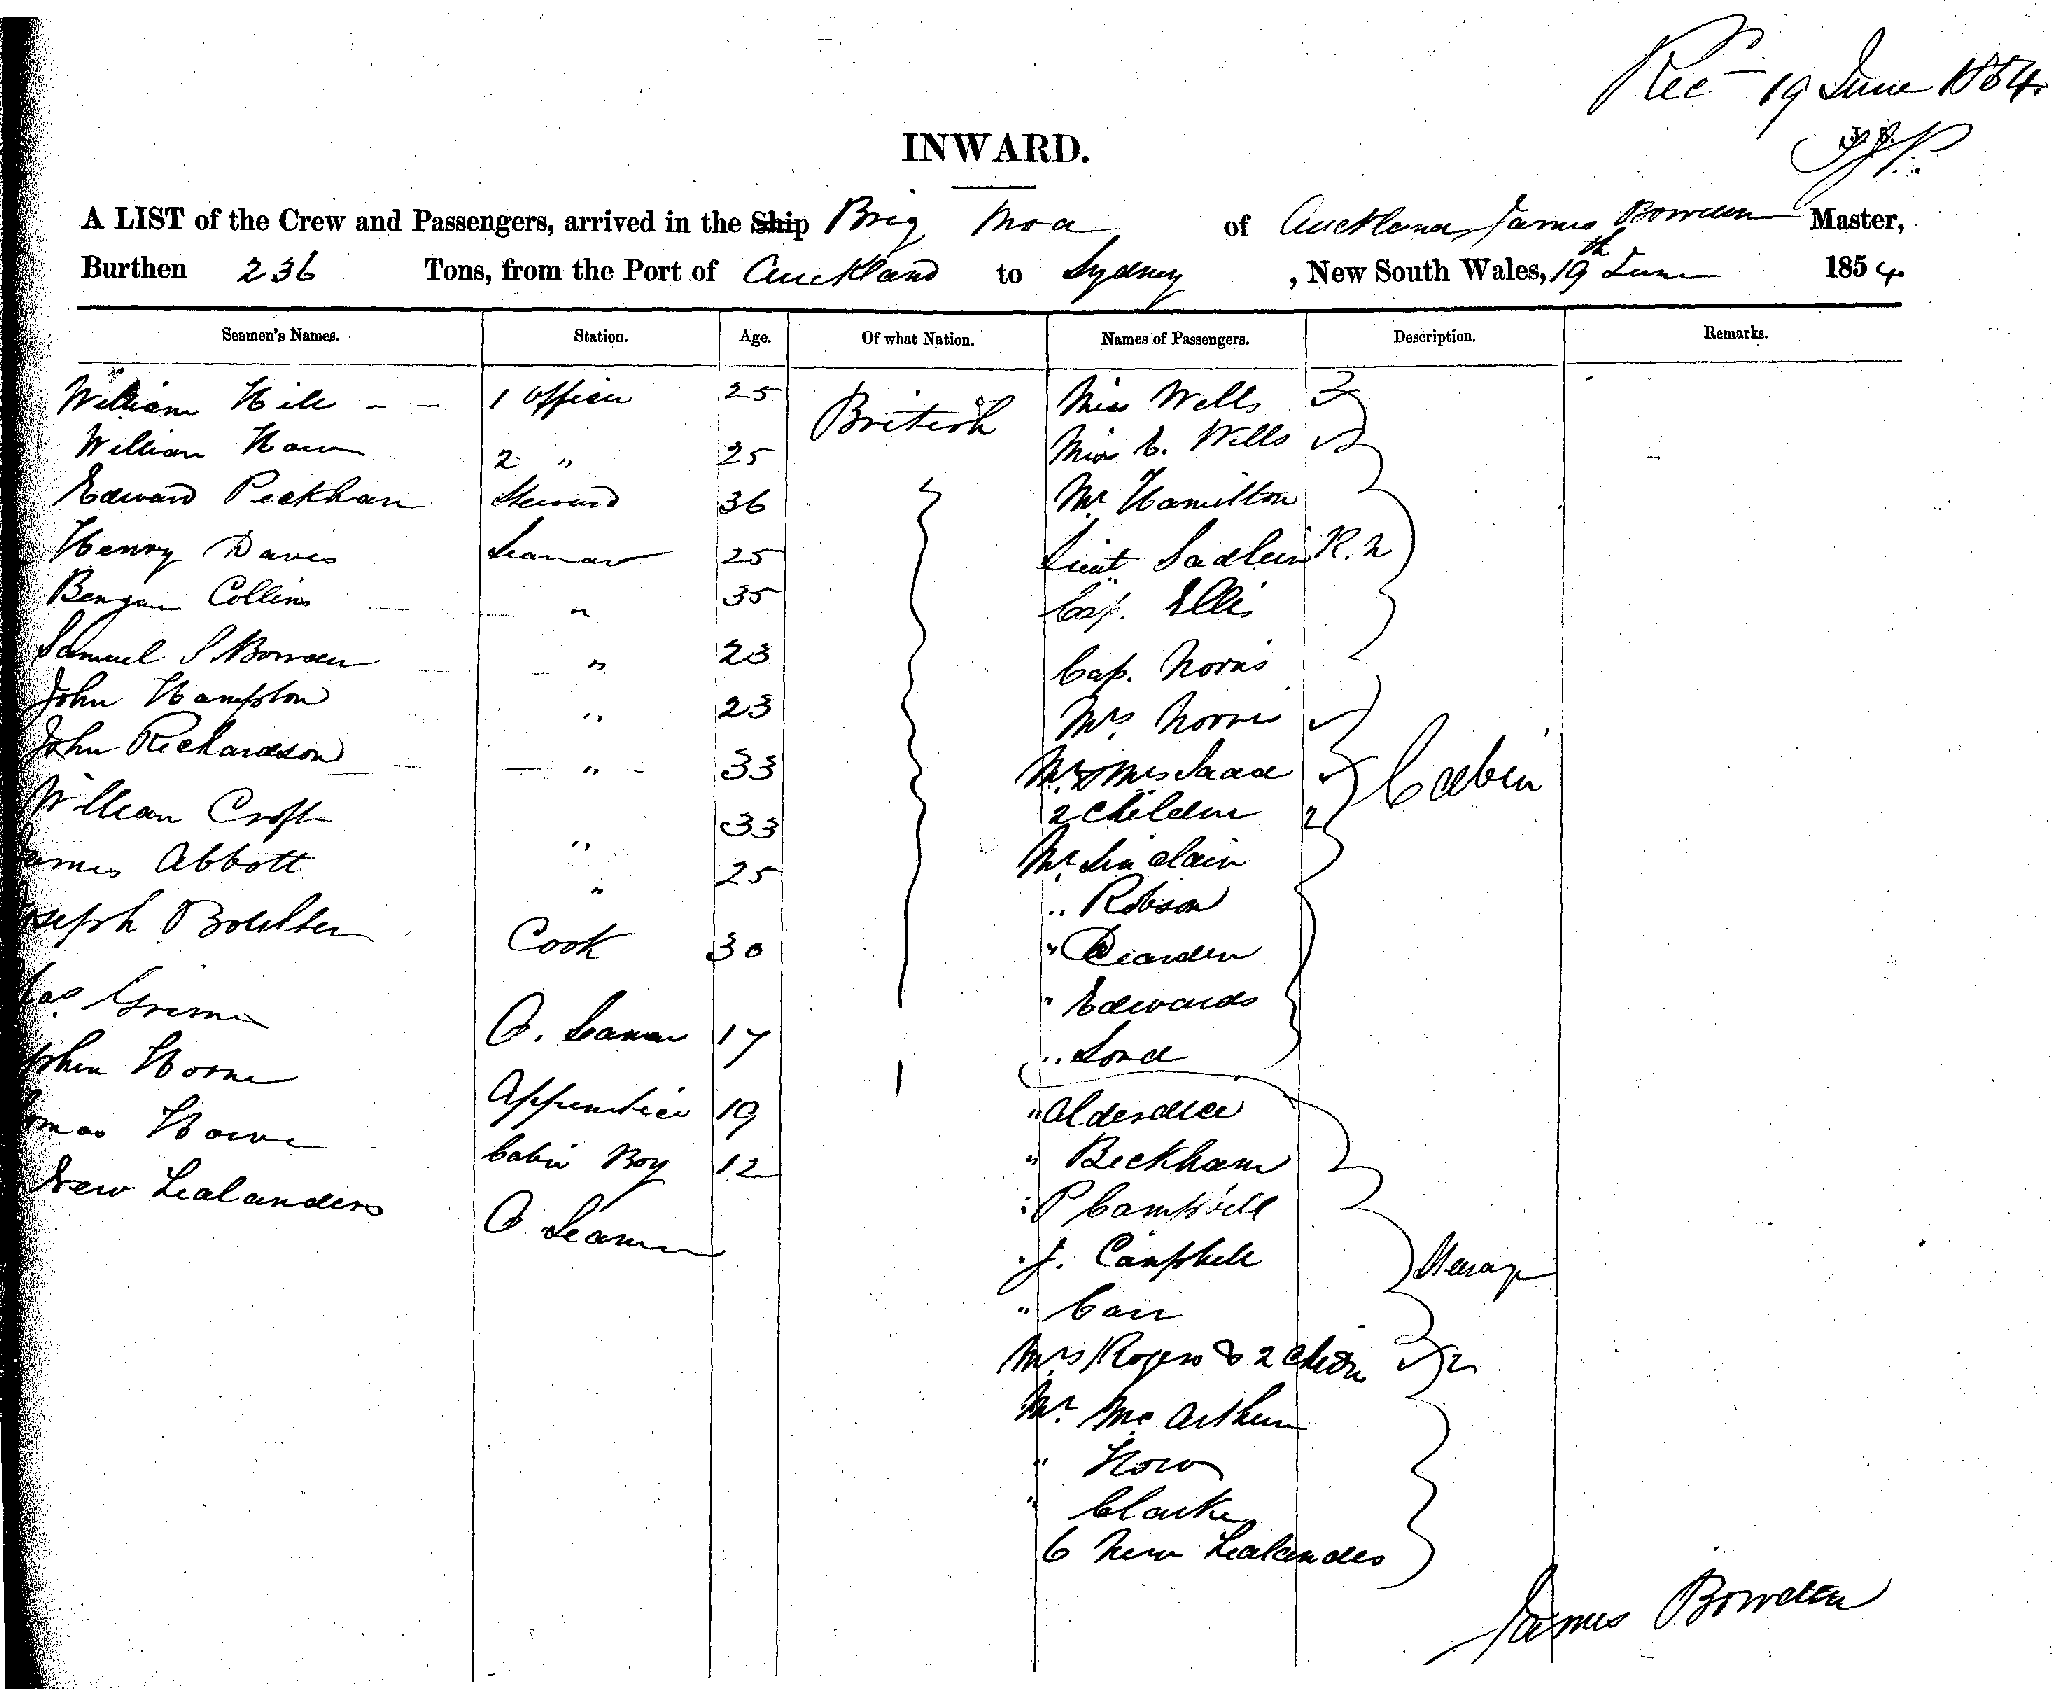 Rec 19 June 1854
INWARD.
A LIST of the Crew and Passengers, arrived in the Ship Brig Moa of Auckland James Bowden Master,
Burthen 236 Tons, from the Port of Auckland to Sydney, New South Wales, 19th June 1854
Seamen's Names. Station. Age. Of what Nation. Names of Passengers. Description. Remarks.
William Hill 1 Officer 25 British Miss Wells
William 2 " 25 Miss E. Wells
Edward Peckham Steward 36 Mr Hamilton
Henry Davis Seaman 25 Lieut Sadleir R.N
Benjan Collins " 35 Cap. Ellis
Samuel S Bowden " 23 Cap. Norris
John Hampton " 23 Mrs Norris
John Richardson " 33 Mr & Mrs Isaac Cabin
2 Children 2
William Croft " 33 Mr Sinclair
ames Abbott " 25 " Robson
oseph Boulter Cook 30 " Dearden
" Edwards
Grime O. Seaman 17 " Lord
ohn Horne Apprentice 19 " Alderdice
omas Howe Cabin Boy 12 " Beckham
New Zealanders O Seamen " P Campbell
" J. Campbell Steerage
" Carr
Mrs Rogers & 2 Chidn 2
Mr McArthur
" How
" Clarke
6 New Zealanders
James Bowden